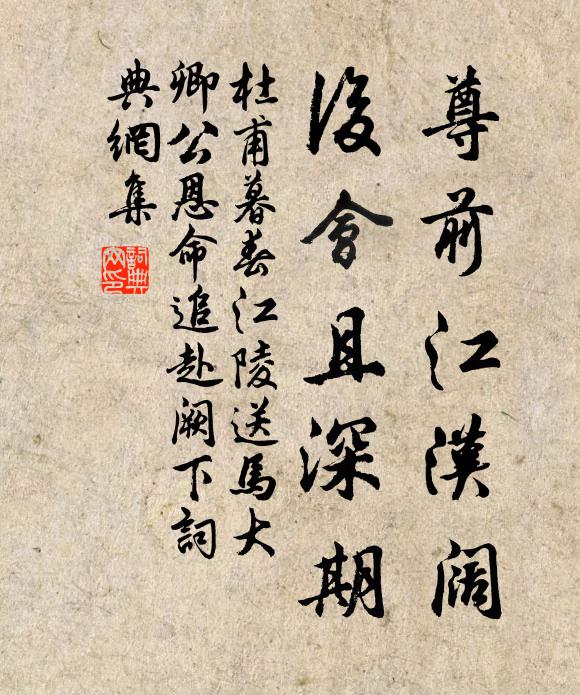 尊前江漢闊
後會且深期
杜甫暮春江陵送馬大
卿公恩命追赴闕下詞
典網集
詞典
网印